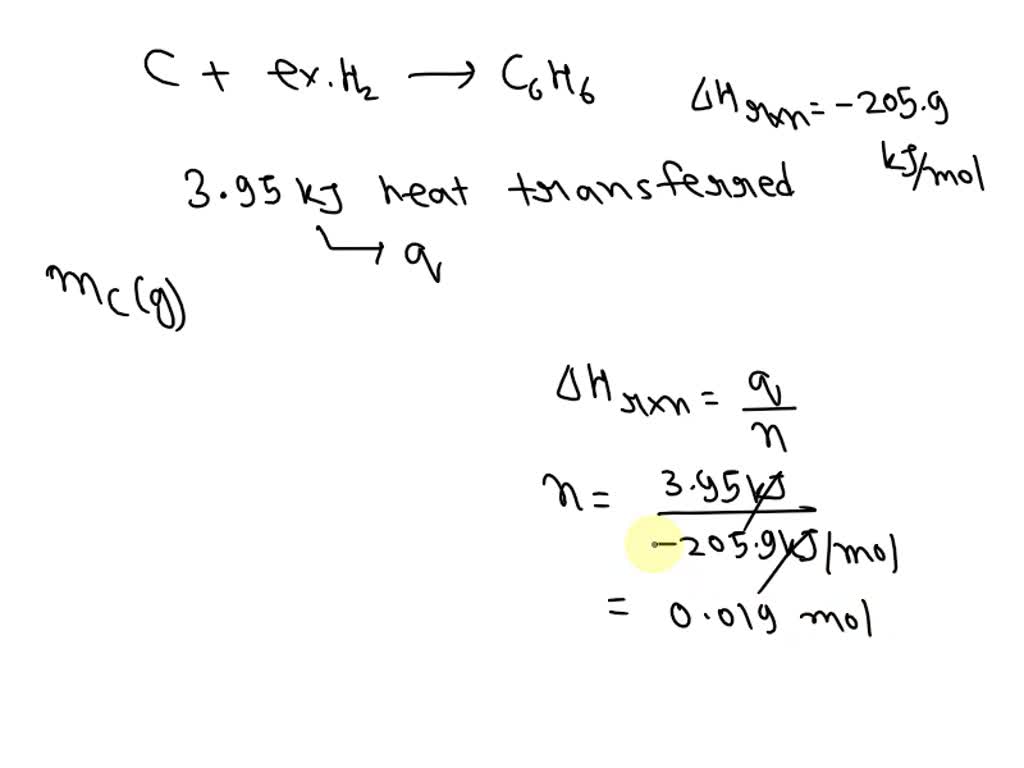 C + ex. H₂ ⟶ C₆H₆
ΔH rxn = -205.9
kJ/mol
3.95 kJ heat transferred
→ q
mc(g)
ΔH rxn = q/n
n = 3.95 kJ
-205.9 kJ/mol
= 0.019 mol